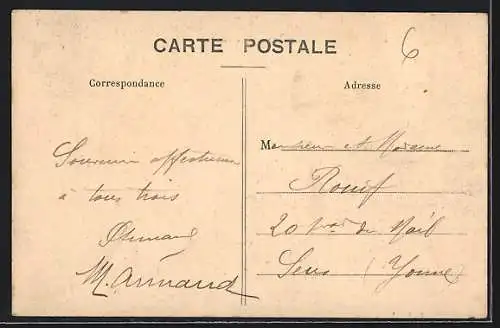 CARTE POSTALE
6
Correspondance
Adresse
Souvenir affectueux
à tous trois
M. Armand
Monsieur et Madame
Rouif
20 du Mail
Sens (Yonne)